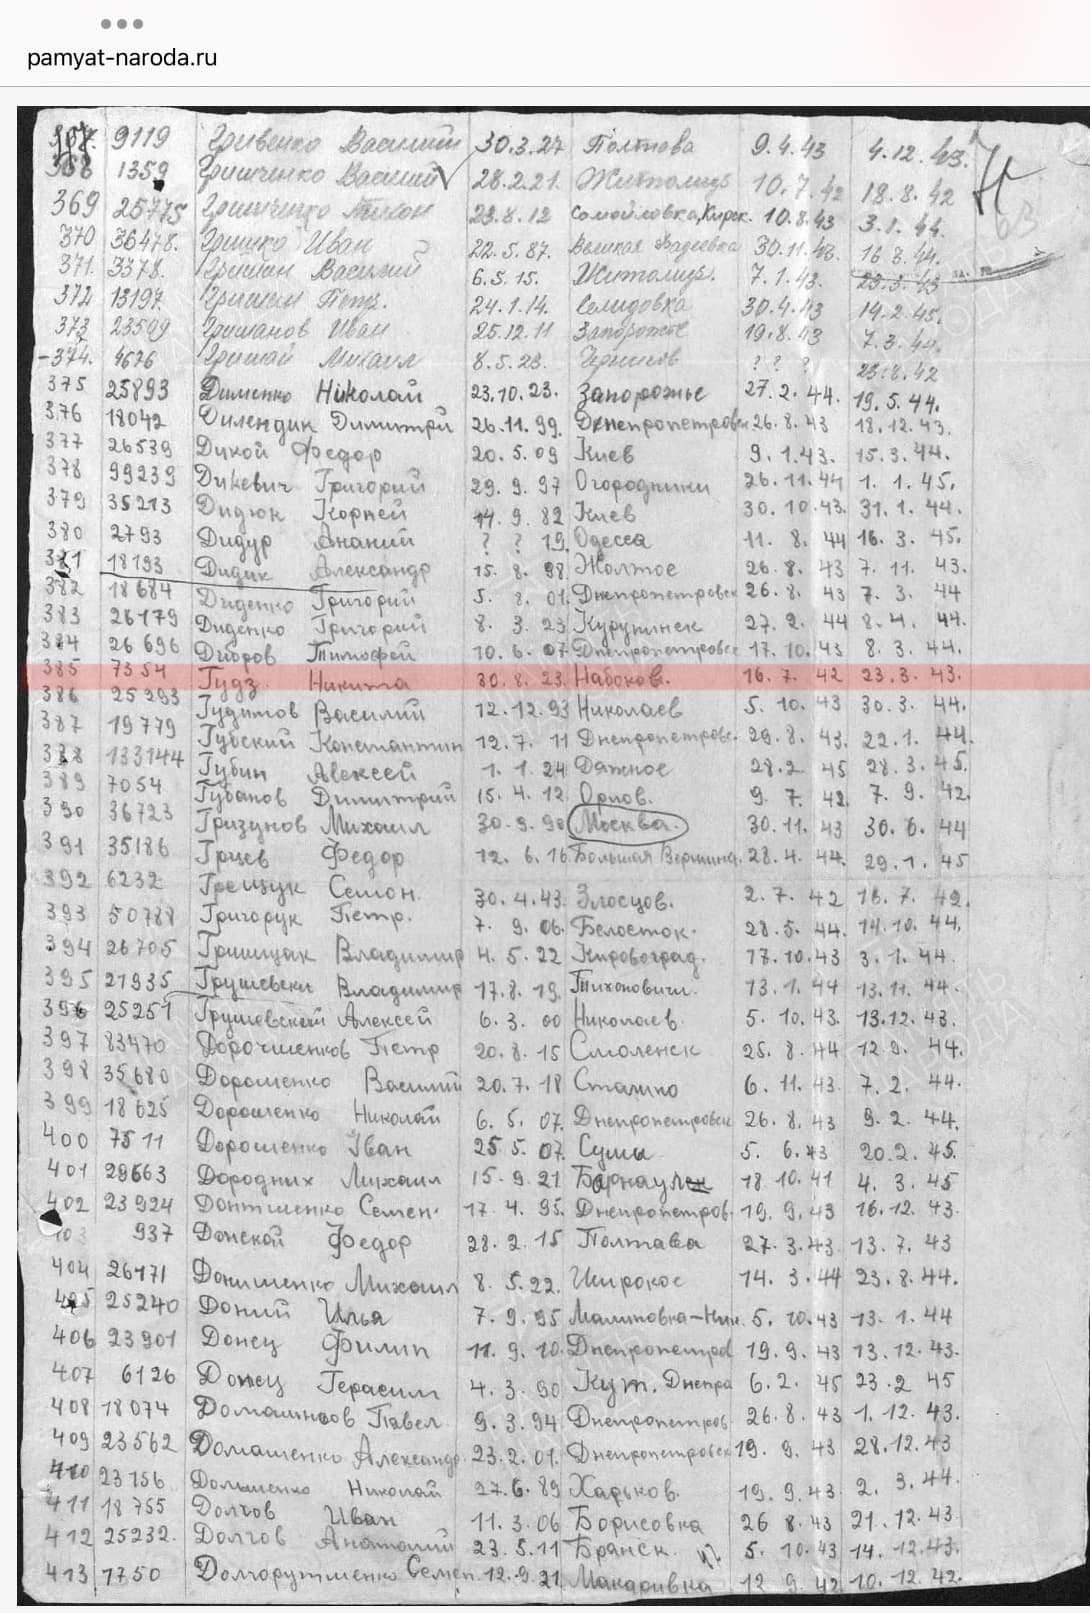 pamyat-naroda.ru
9119 Гривенко Василий 30.3.27 Полтова 9.4.43 4.12.43.
368 1359 Грищенко Василий 28.2.21. Житомир 10.7.42 18.8.42
369 25775 Грищенко 23.8.12 Самойловка, 10.8.43 3.1.44.
370 36478. Гришко Иван 22.5.87. Великая 30.11.43. 16.3.44.
371. 3378. Гришан Василий 6.5.15. Житомир. 7.1.43. 23.3.43
372 13197. Гришин Петр. 24.1.14. Селидовка 30.4.43 14.2.45.
373 23599 Гришанов Иван 25.12.11 Запорожье 19.8.43 7.3.44.
-374. 4676 Гришай Михаил 8.5.23. Чернигов ? ? ? 23.8.42
375 25893 Дименко Николай 23.10.23. Запорожье 27.2.44. 19.5.44.
376 18042 Дилендик Димитрй 26.11.99. Днепропетровск 26.8.43 18.12.43.
377 26539 Дикой Федор 20.5.09 Киев 9.1.43. 15.3.44.
378 99239 Дикевич Григорий 29.9.97 Огородники 26.11.44 1.1.45.
379 35213 Дидюк Корней 14.9.82 Киев 30.10.43. 31.1.44.
380 2793 Дидур Ананий ? ? 19. Одесса 11.8.44 16.3.45.
381 18193 Дидик Александр 15.8.98. Жолтое 26.8.43 7.11.43.
382 18684 Диденко Григорий 5.8.01. Днепропетровск 26.8.43 7.3.44
383 26179 Диденко Григорий 8.3.23 Курупинск 27.2.44 8.4.44.
384 26696 Диборов Тимофей 10.6.07 Днепропетровск 17.10.43 8.3.44.
385 7354 Гудз. Никита 30.8.23. Набоков. 16.7.42 23.3.43.
386 25293 Гудимов Василий 12.12.93 Николаев 5.10.43 30.3.44.
387 19779 Губский Константин 12.7.11 Днепропетровс. 29.8.43. 22.1.44.
388 133144 Губин Алексей 1.1.24 Дяжное 28.2.45 28.3.45.
389 7054 Губанов Димитрий 15.4.12. Орлов. 9.7.42. 7.9.42.
390 36723 Гризунов Михаил 30.9.90 Москва. 30.11.43 30.6.44
391 35186 Грцев Федор 12.6.16. Большая 28.4.44. 29.1.45
392 6232 Грещук Семон. 30.4.43. Злосцов. 2.7.42 16.7.42.
393 50788 Григорук Петр. 7.9.06. Белосток. 28.5.44. 14.10.44.
394 26705 Грищцак Владимир 4.5.22 Кировоград. 17.10.43 3.1.44.
395 21935 Грушевски Владимир 17.8.19. Тихоновичи. 13.1.44 13.11.44.
396 25251 Грушевский Алексей 6.3.00 Николаев. 5.10.43. 13.12.43.
397 83470 Дорочшенков Петр 20.8.15 Смоленск 25.8.44 12.9.44.
398 35680 Дорошенко Василий 20.7.18 Сталино 6.11.43. 7.2.44.
399 18625 Дорошенко Николай 6.5.07. Днепропетровск 26.8.43 9.2.44.
400 7511 Дорошенко Iван 25.5.07. Сумы 5.6.43 20.2.45.
401 29663 Дородних Михаил 15.9.21 Барнаул 18.10.41 4.3.45
402 23924 Донтшенко Семен. 17.4.95. Днепропетров. 19.9.43 16.12.43.
403 937 Донской Федор 28.2.15 Полтава 27.3.43. 13.7.43
404 26171 Донишенко Михаил 8.5.22. Широкое 14.3.44 23.8.44.
405 25240 Доний Илья 7.9.95 Малиновка-Ник. 5.10.43 13.1.44
406 23901 Донец Филип 11.9.10. Днепропетров 19.9.43 13.12.43.
407 6126 Донец Герасим 4.3.90 Кут. Днепра 6.2.45 23.2.45
408 18074 Домашнов Павел 9.3.94 Днепропетров. 26.8.43 1.12.43.
409 23562 Домашенко Александр. 23.2.01. Днепропетровск 19.9.43 28.12.43
410 23156 Домашенко Николай 27.6.89 Харьков. 19.9.43 2.3.44
411 18755 Долгов Иван 11.3.06 Борисовка 26.8.43 21.12.43
412 25232. Долгов Анатолий 23.5.11 Брянск. 5.10.43 14.12.43.
413 1750 Долгорутшенко Семен. 12.9.21. Макаривка 12.9.42 10.12.42.